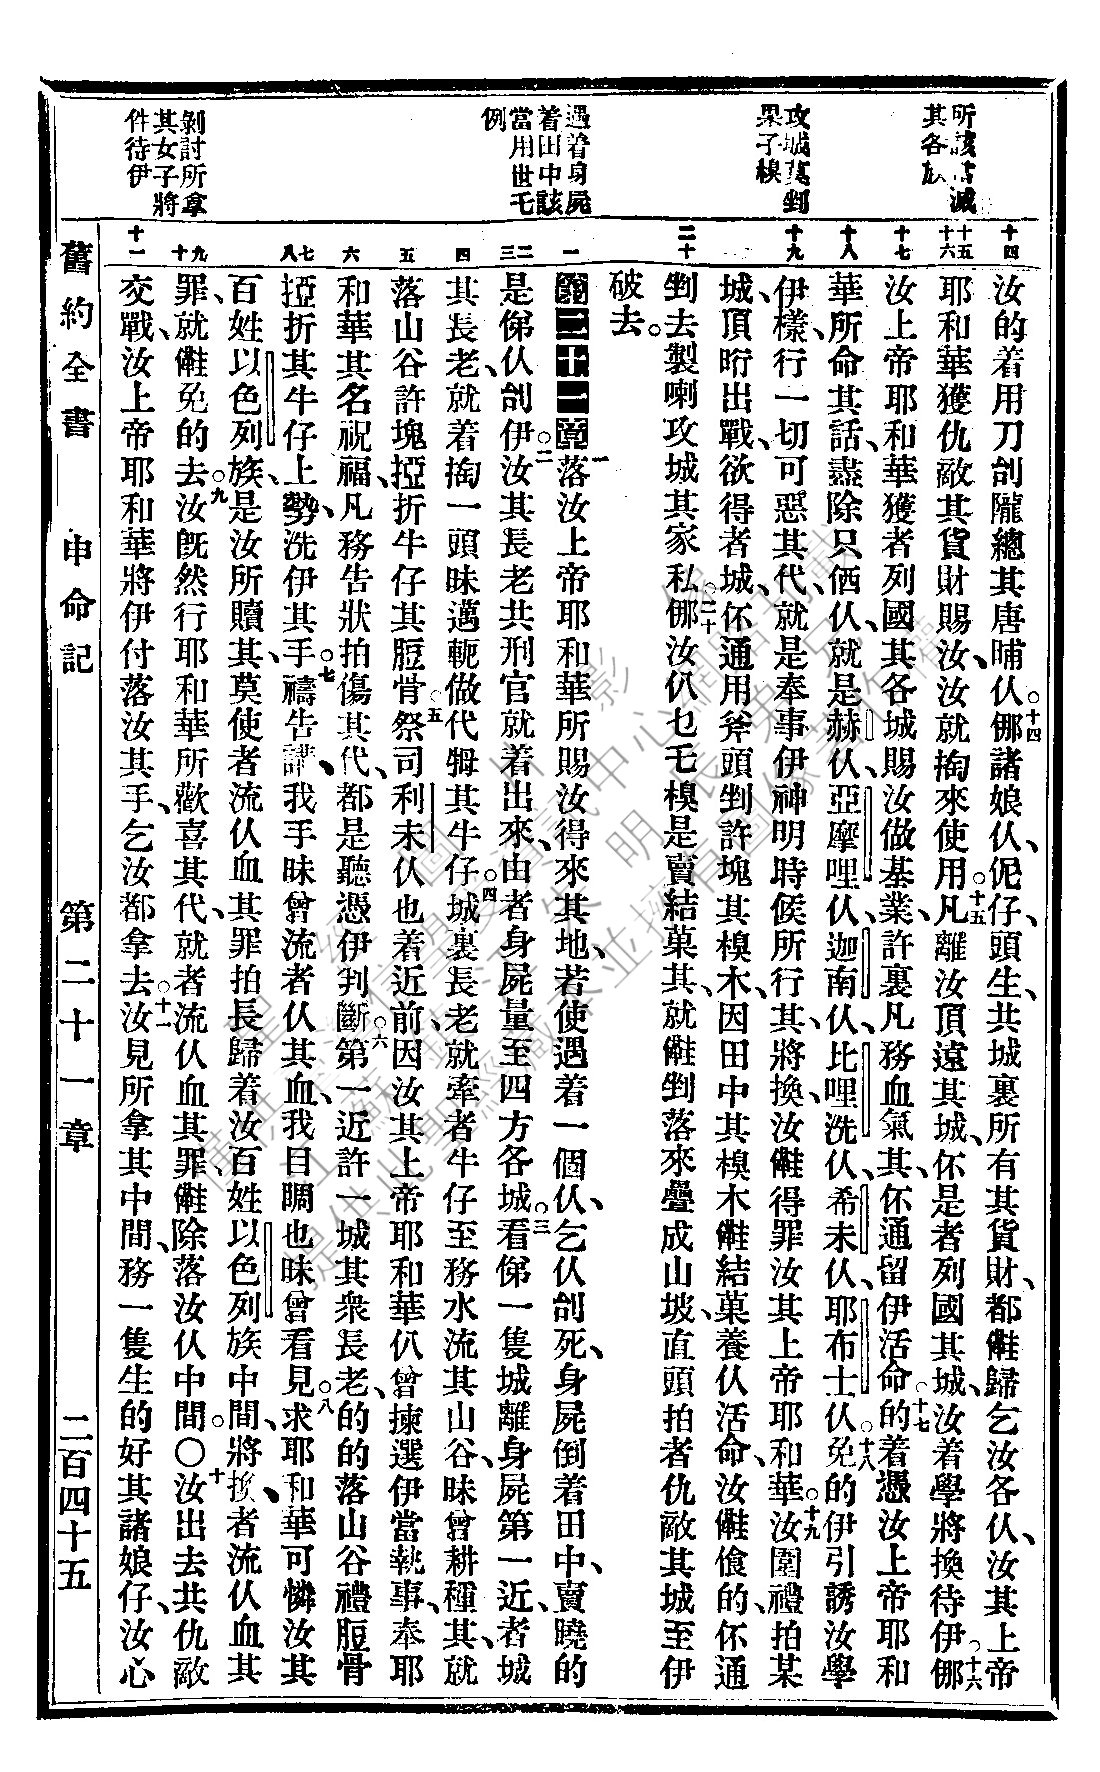 所該當滅
其各族
攻城莫剉
果子樹
遇着身屍
着田中該
當用世乇
例
剝討所拿
其女子將
件待伊
十四
十五
十六
十七
十八
十九
二十
一
二
三
四
五
六
七
八
九
十
十一
汝的着用刀刣隴總其唐晡仈○十四㑚諸娘仈、伲仔、頭生、共城裏所有其貨財、都𠆧歸乞汝各仈、汝其上帝
耶和華獲仇敵其貨財賜汝、汝就掏來使用○十五凡離汝頂遠其城、伓是者列國其城、汝着學將換待伊○十六㑚
汝上帝耶和華獲者列國其各城賜汝做基業、許裏凡務血氣其、伓通留伊活命○十七的着憑汝上帝耶和
華、所命其話、盡除只㑚仈、就是赫仈、亞摩哩仈、迦南仈、比哩洗仈、希未仈、耶布士仈○十八免的伊引誘汝學
伊樣、行一切可惡其代、就是奉事伊神明時候所行其、將換汝𠆧得罪汝其上帝耶和華○十九汝圍禮拍某
城、頂昕出戰、欲得者城、伓通用斧頭剉許塊其樹木、因田中其樹木𠆧結菓養仈活命、汝𠆧飡的、伓通
剉去製喇攻城其家私○二十㑚汝仈乜乇樹是賣結菓其、就𠆧剉落來疊成山坡、直頭拍者仇敵其城至伊
破去。
第二十一章一落汝上帝耶和華所賜汝得來其地、若使遇着一個仈、乞仈刣死、身屍倒着田中、賣曉的
是俤仈刣伊○二汝其長老共刑官就着出來、由者身屍量至四方各城○三看俤一隻城離身屍第一近、者城
其長老、就着掏一頭昧邁軛做代牳其牛仔○四城裏長老就牽者牛仔至務水流其山谷、昧曾耕種其、就
落山谷許塊掗折牛仔其脰骨○五祭司利未仈也着近前、因汝其上帝耶和華仈曾揀選伊當執事、奉耶
和華其名祝福、凡務告狀拍傷其代、都是聽憑伊判斷○六第一近許一城其衆長老、的的落山谷禮脰骨
掗折其牛仔上勢、洗伊其手○七禱告講、我手昧曾流者仈其血、我目睭也昧曾看見○八求耶和華可憐汝其
百姓以色列族、是汝所贖其、莫使者流仈血其罪拍長歸着汝百姓以色列族中間、將換者流仈血其
罪、就𠆧免的去○九汝旣然行耶和華所歡喜其代、就者流仈血其罪𠆧除落汝仈中間。○十汝出去共仇敵
交戰、汝上帝耶和華將伊付落汝其手、乞汝都拿去○十一汝見所拿其中間、務一隻生的好其諸娘仔、汝心
舊約全書　申命記　第二十一章　二百四十五